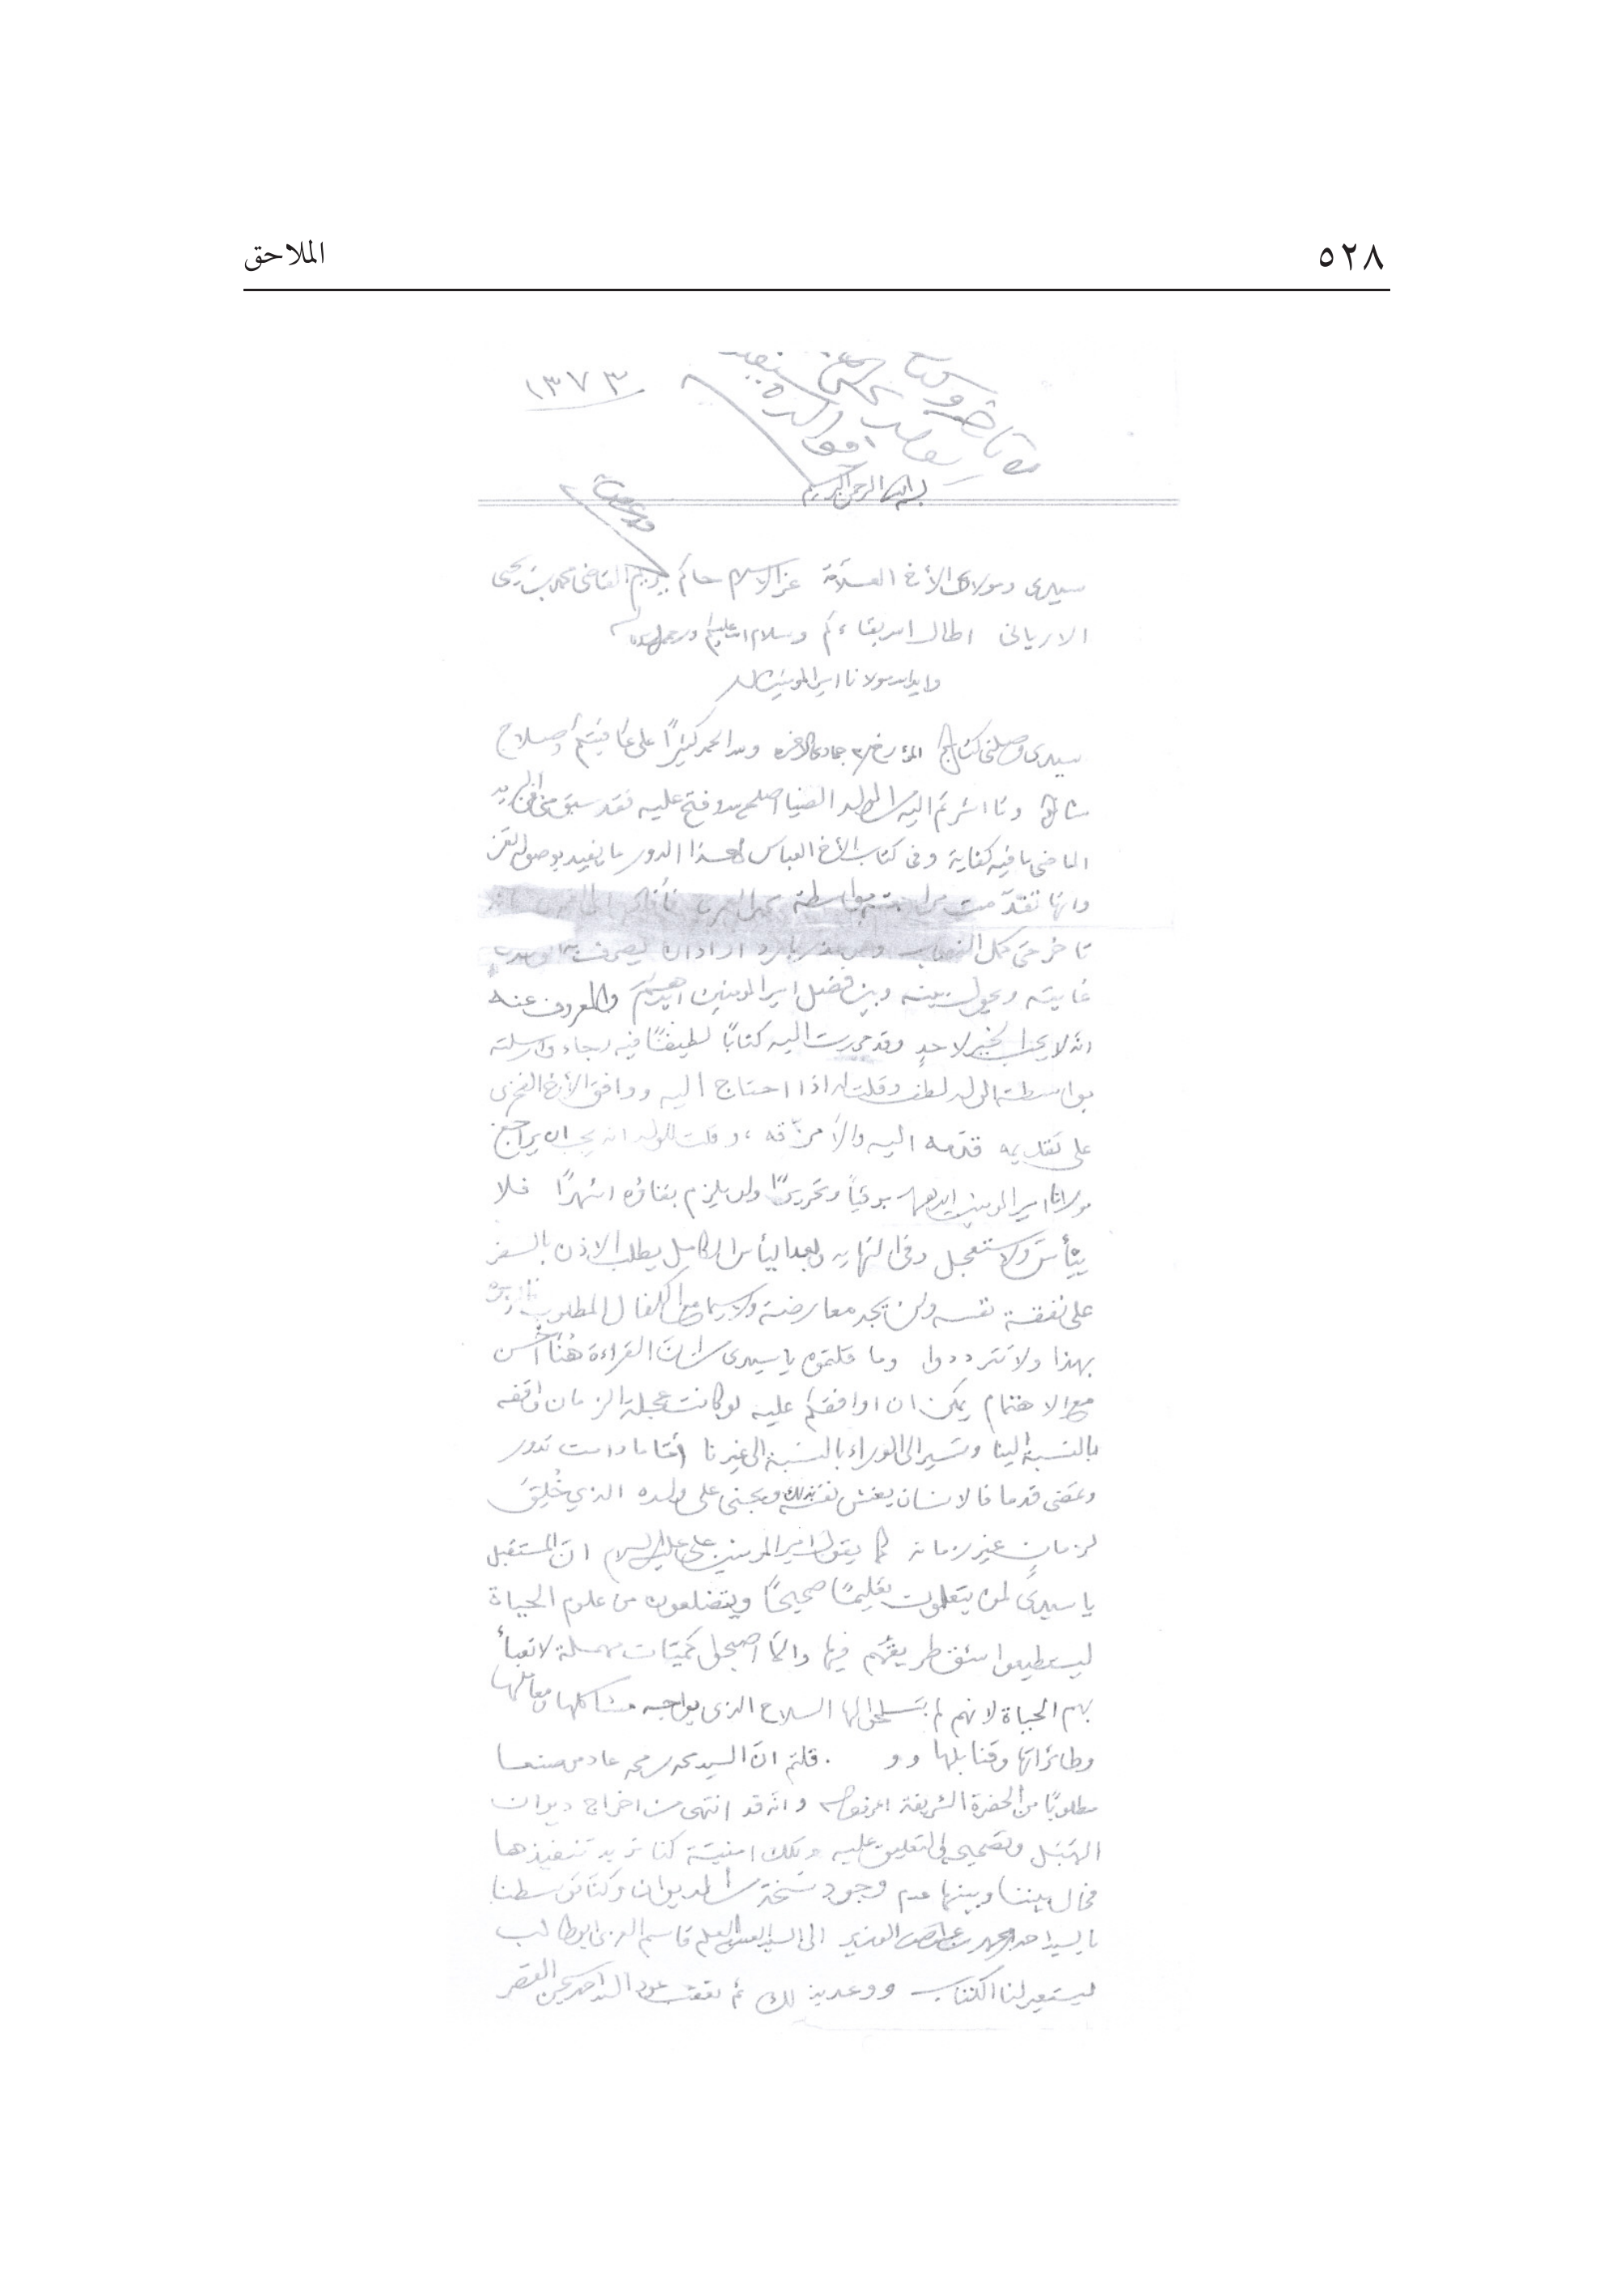 ٥٢٨
الملاحق
١٣٧٣
بسم الله الرحمن الرحيم
سيدي ومولاي الأخ العلامة عز الاسلام حاكم يريم القاضي محمد بن يحيى
الارياني اطال الله بقاءكم وسلام الله عليكم ورحمة الله
وايد الله مولانا امير المؤمنين
سيدي وصلني كتابكم المؤرخ جمادى الآخرة ولله الحمد كثيرًا على عافيتكم وصلاح
شأنكم وما اشرتم اليه من الولد الضيا اصلحه الله وفتح عليه فقد سبق مني في البريد
الماضي ما فيه كفاية وفي كتاب الأخ العباس لهذا الدور ما يفيد بوصول
وانها تقدّمت مراجعته بواسطة
تأخر حتى كمل النصاب اراد ان يصرف
غايته ويحول بينه وبين فضل امير المؤمنين ايده الله والمعروف عنه
انه لا يحب الخير لاحدٍ وقد حررت اليه كتابًا لطيفًا فيه رجاء وارسلته
بواسطة الولد لطف وقلت له اذا احتاج اليه ووافق الأخ الفخري
على تقديمه قدّمه اليه والاّ مزّقه، وقلت للولد انه يجب ان يراجع
مولانا امير المؤمنين ايده الله برقيًا وتحريرًا ولو يلزم بقاؤه اشهرًا فلا
ييأس ولا يستعجل وفي النهاية وبعد اليأس الكامل يطلب الاذن بالسفر
على نفقة نفسه ولن يجد معارضة ولا سيما مع الكفال المطلوب
بهذا ولا تترددوا وما قلتموه يا سيدي من ان القراءة هُنا أحسن
مع الاهتمام يمكن ان اوافقكم عليه لو كانت عجلة الزمان واقفه
بالنسبة الينا وتسير الى الوراء بالنسبة الى غيرنا أمّا ما دامت تدور
وتمضي قدما فالانسان يغش نفسه بذلك ويجني على ولده الذي خُلِقَ
لزمانٍ غير زمانه كما يقول امير المؤمنين علي عليه السلام انّ المستقبل
يا سيدي لمن يتعلمون تعليمًا صحيحًا ويتضلعون من علوم الحياة
ليستطيعوا شق طريقهم فيها والاّ اصبحوا كميّات مهملة لا تعبأ
بهم الحياة لانهم لم يتسلحوا لها السلاح الذي يواجه مشاكلها ومعاملها
وطائراتها وقنابلها و و . قلتم انّ السيد محمد عاد من صنعا
مطلوبًا من الحضرة الشريفة وانه قد انتهى من اخراج ديوان
الهَبَل وتصحيحه والتعليق عليه وتلك امنيّة كنا نريد تنفيذها
فحال بيننا وبينها عدم وجود نسخة من الديوان وكنّا توسطنا
بالسيد احمد محمد الوزير الى السيد العلم قاسم العزي ابو طالب
ليستعير لنا الكتاب ووعد بذلك ثم